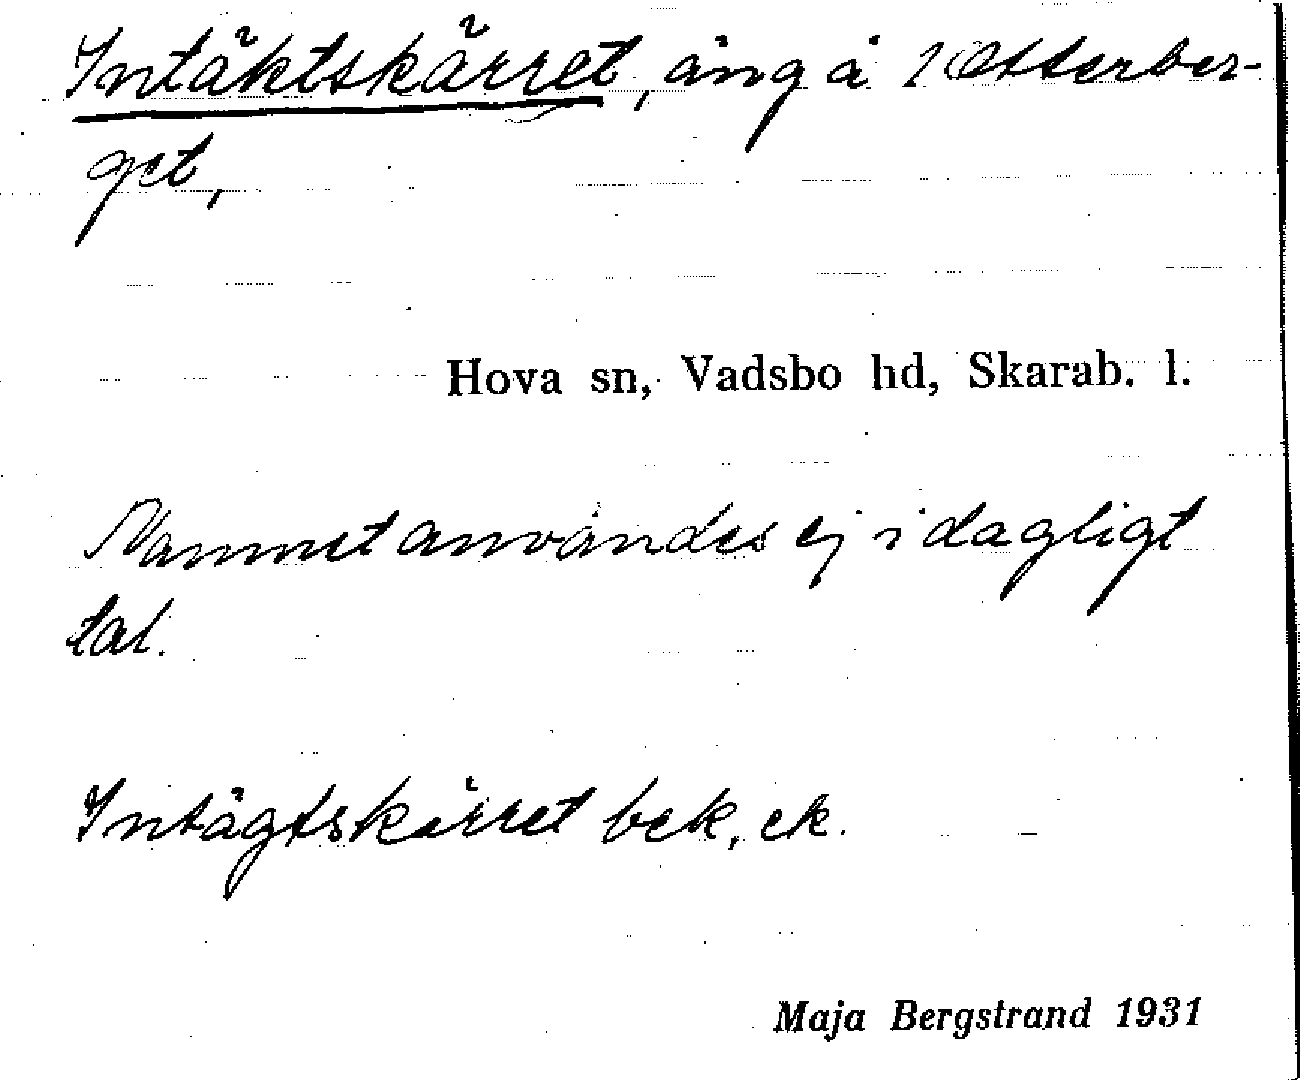 Intäktskärret, äng å 1 Otterber-
get,
Hova sn, Vadsbo hd, Skarab. l.
Namnet användes ej i dagligt
tal.
Intägtskärret bek, ek.
Maja Bergstrand 1931